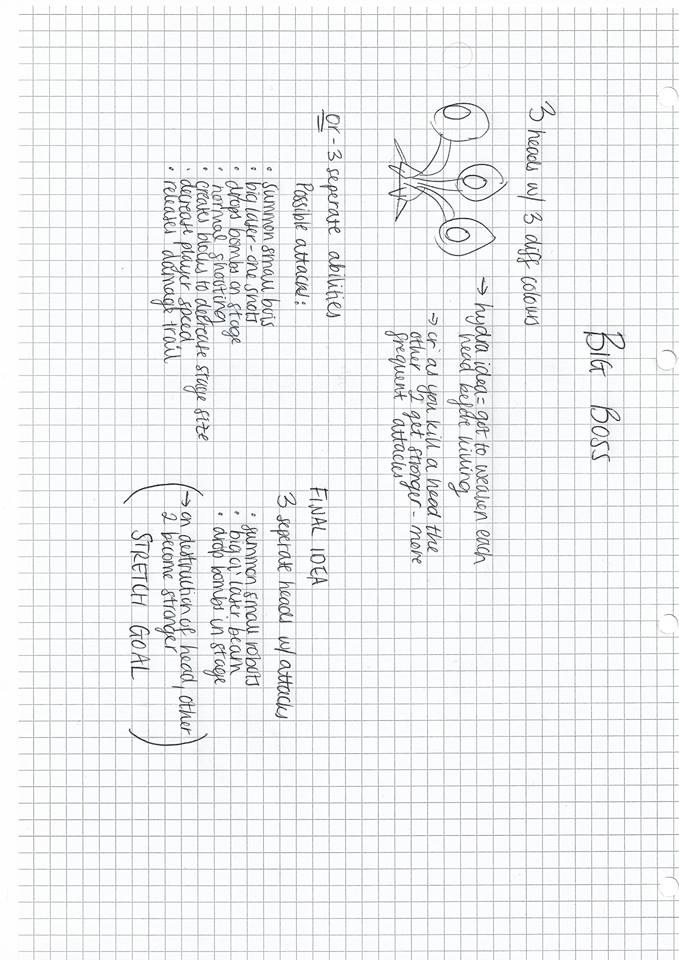 BIG BOSS
3 heads w/ 3 diff colours
→ hydra idea = got to weaken each
head before killing
→ or as you kill a head the
other 2 get stronger - more
frequent attacks
or - 3 seperate abilities
Possible attacks:
• summon small bois
• big laser - one shots
• drops bombs on stage
• normal shooting
• creates blocks to decrease stage size
• decrease player speed
• releases damage trail
FINAL IDEA
3 seperate heads w/ attacks
• summon small robots
• big ol' laser beam
• drop bombs in stage
(→ on destruction of head, other
2 become stronger
STRETCH GOAL)